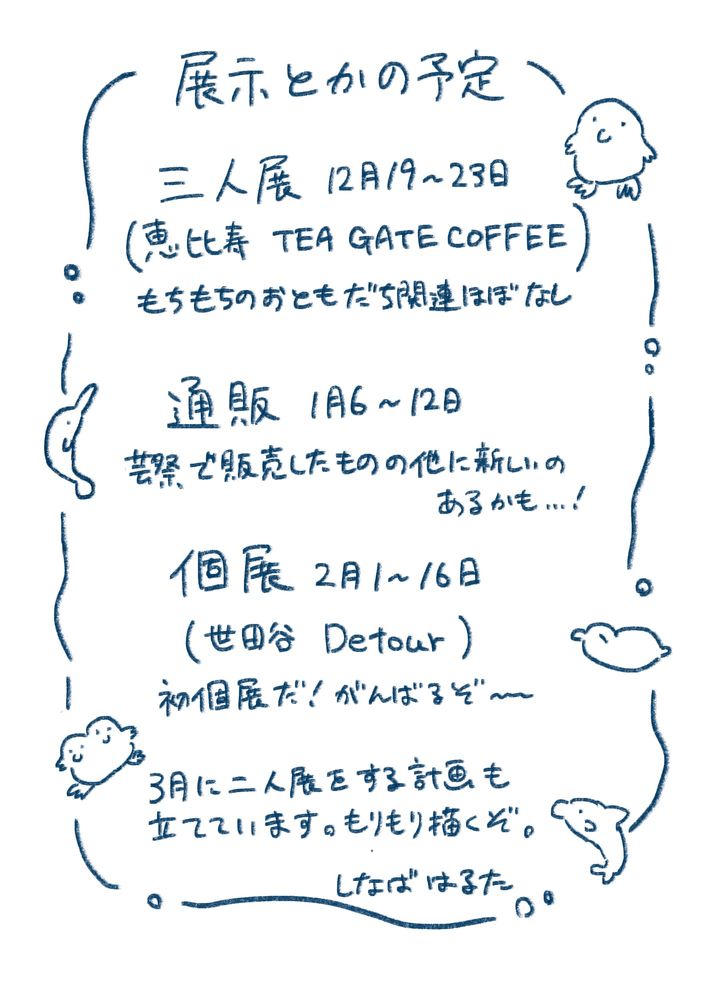 展示とかの予定
三人展 12月19~23日
(恵比寿 TEA GATE COFFEE)
もちもちのおともだち関連ほぼなし
通販 1月6~12日
芸祭で販売したものの他に新しいの
あるかも...!
個展 2月1~16日
(世田谷 Detour)
初個展だ!がんばるぞ~~
3月に二人展をする計画も
立てています。もりもり描くぞ。
しなば はるた